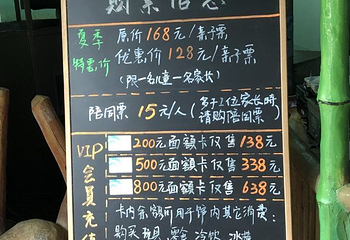 夏季 原价168元/亲子票
特惠价 优惠价128元/亲子票
(限一名儿童一名家长)
陪同票 15元/人(多于1位家长时
请购陪同票)
VIP会员充值
200元面额卡仅售138元
500元面额卡仅售338元
800元面额卡仅售638元
卡内余额可用于馆内其它消费:
购买 零食 冷饮